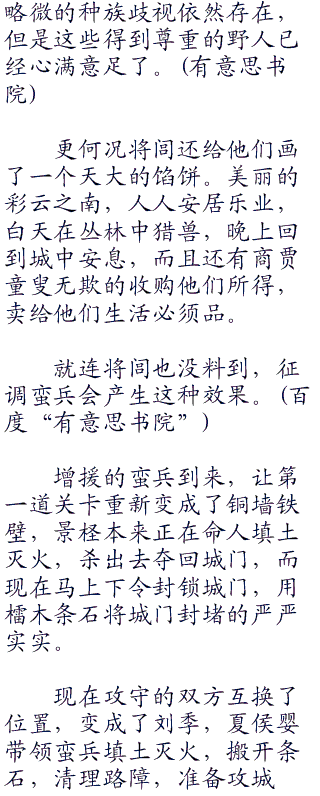 略微的种族歧视依然存在，
但是这些得到尊重的野人已
经心满意足了。(有意思书
院)
更何况将闾还给他们画
了一个天大的馅饼。美丽的
彩云之南，人人安居乐业，
白天在丛林中猎兽，晚上回
到城中安息，而且还有商贾
童叟无欺的收购他们所得，
卖给他们生活必须品。
就连将闾也没料到，征
调蛮兵会产生这种效果。(百
度“有意思书院”)
增援的蛮兵到来，让第
一道关卡重新变成了铜墙铁
壁，景柽本来正在命人填土
灭火，杀出去夺回城门，而
现在马上下令封锁城门，用
檑木条石将城门封堵的严严
实实。
现在攻守的双方互换了
位置，变成了刘季，夏侯婴
带领蛮兵填土灭火，搬开条
石，清理路障，准备攻城